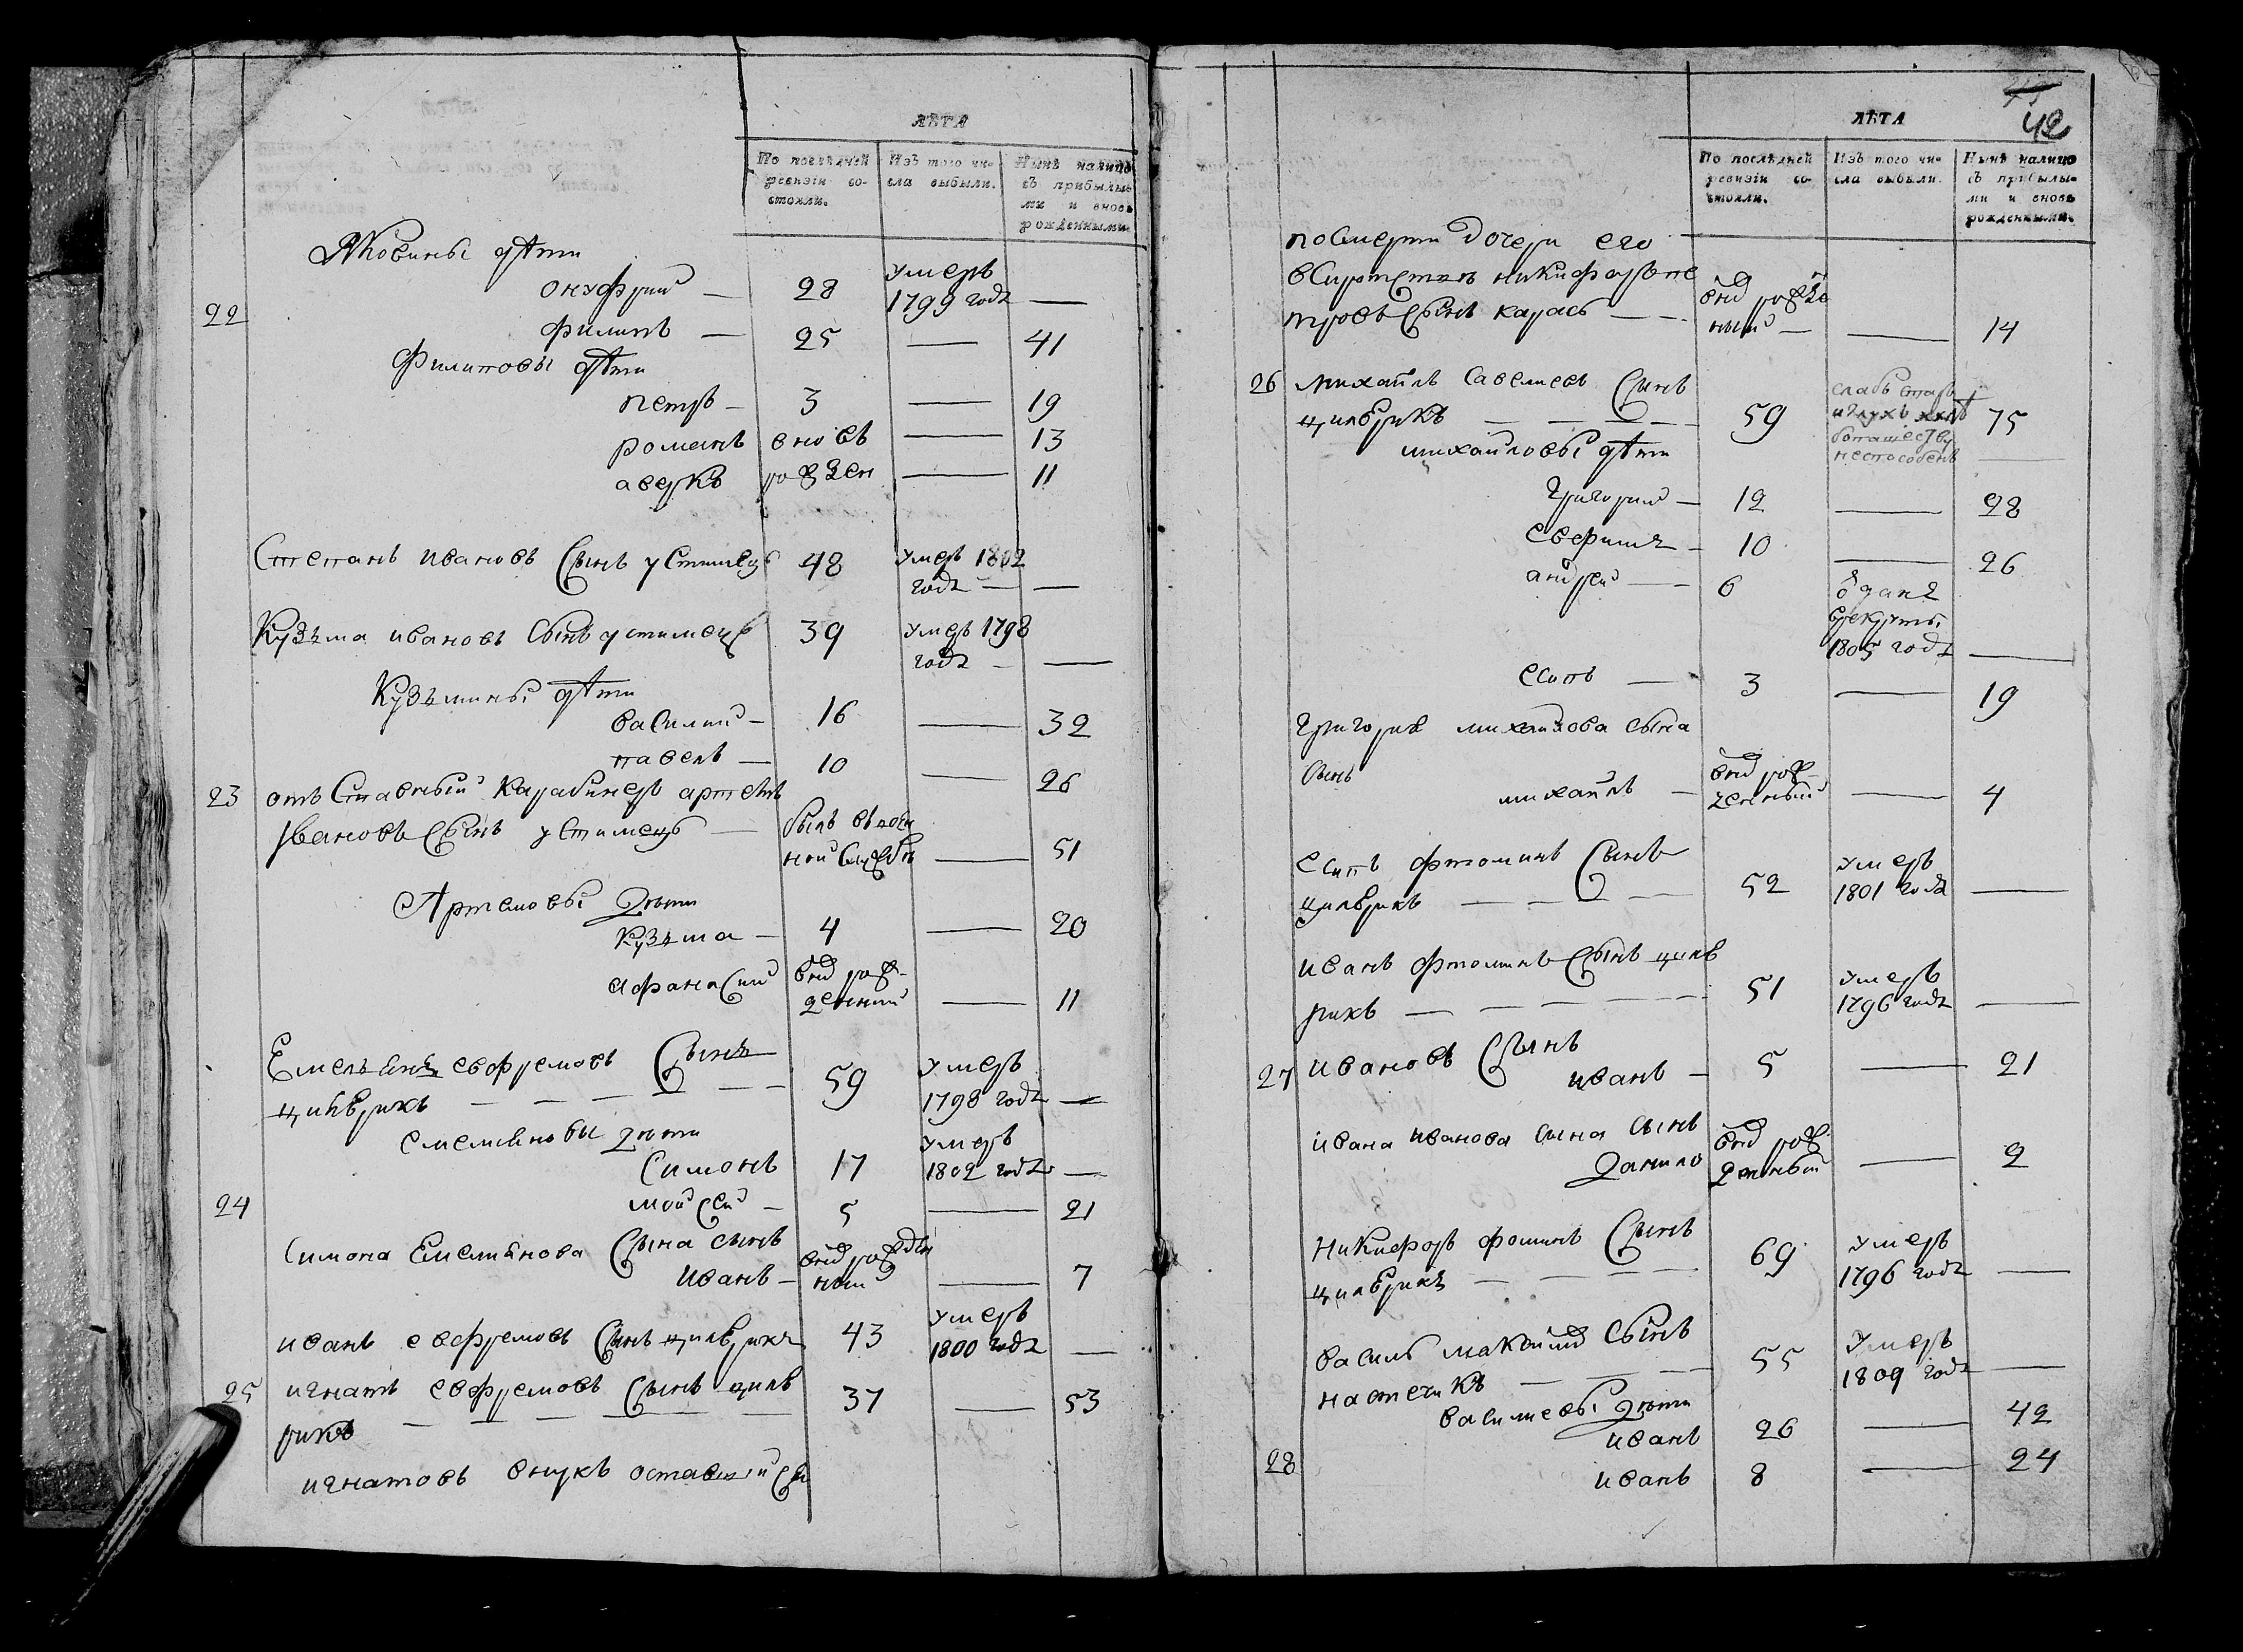 ЛѢТА
По послѣдней ревизіи со-стояли.
Изъ того чи-сла выбыли.
Нынѣ налицо съ прибылы-ми и вновь рожденными.
Яковины дѣти
22 онуфрий — 28 умеръ 1799 года —
филипъ — 25 — 41
Филиповы дѣти
петръ — 3 — 19
романъ вновь — 13
аверкъ рожден — 11
Степанъ ивановъ Сынъ устимецъ 48 умеръ 1802 года —
Кузьма ивановъ Сынъ устимецъ 39 умеръ 1798 года —
Кузьмины дѣти
василий — 16 — 32
павелъ — 10 — 26
23 отъ Ставный Карабинеръ артемъ
Ивановъ Сынъ устимецъ — былъ въ воен ной Службѣ — 51
Артемовы дѣти
Кузьма — 4 — 20
афанасий внд рож-денный — 11
Емельянъ евфремовъ Сынъ
цилюрикъ — 59 умеръ 1798 года —
емельяновы дѣти
Симонъ 17 умеръ 1802 года —
24 мойсей — 5 — 21
Симона Емельянова Сына сынъ
иванъ — внд рожден ный — 7
иванъ евфремовъ Сынъ цилюрикъ 43 умеръ 1800 года —
25 игнатъ евфремовъ Сынъ цилю
рикъ — 37 — 53
игнатовъ внукъ оставшийся
42
ЛѢТА
По послѣдней ревизіи со-стояли.
Изъ того чи-сла выбыли.
Нынѣ налицо съ прибылы-ми и вновь рожденными.
посмерти дочери его
всиротствѣ никифоръ пе
тровъ Сынъ карась — внд рожде ный — — 14
26 михайлъ савелиевъ Сынъ
цилюрикъ — 59 слабъ старъ и глухъ неспособенъ 75
михайловы дѣти
григорий — 12 — 28
евфимъ — 10 — 26
андрей — 6 отданъ врекруты 1805 года —
есипъ — 3 — 19
григория михайлова сына
сынъ
михайлъ — внд рож-денный — 4
есипъ фтоминъ Сынъ
цилюрикъ — 52 умеръ 1801 года —
иванъ фтоминъ Сынъ цилю
рикъ — 51 умеръ 1796 года —
27 ивановъ Сынъ
иванъ — 5 — 21
ивана иванова сына сынъ
данило внд рож-денный — 2
Никифоръ фоминъ Сынъ
цилюрикъ — 69 умеръ 1796 года —
василь Сынъ
настечикъ — 55 умеръ 1809 года —
василиевы дѣти
иванъ 26 — 42
28 иванъ 8 — 24